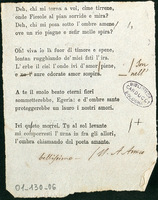 Deh, chi mi torna a voi, cime tirrene,
onde Fiesole al pian sorride e mira?
Deh, chi mi posa sotto l'ombre amene
ove un rio piagne e zefir molle spira?
Oh! viva io là fuor di timore e spene,
lontan rugghiando de' miei fati l'ira:
L'erbe il ciel l'onde ivi d'amor
e odorate amor sospira.
A te il suolo beato eterni fiori
sommetterebbe, Egeria; e d'ombre sante
proteggerebbe un lauro i nostri amori.
Ivi queto morrei. Tu al sol levante
mi comporresti l'urna in fra gli allori,
l'ombra chiamando del poeta amante.
01_130.06